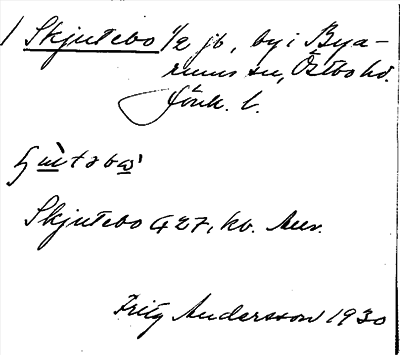 / Skjutebo 1/2 jb, by i Bya-
rums sn, Östbo hd.
Jönk. l.
Skjutebo 427, kb. Auv.
Fritz Andersson 1930